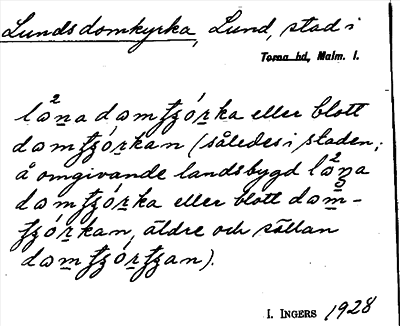 Lunds domkyrka, Lund, stad i
Torna hd, Malm. l.
lana damʃʒórka eller blott
damʃʒórkan (således i staden;
å omgivande landsbygd lana
damʃʒórka eller blott dam-
ʃʒórkan, äldre och sällan
damʃʒórʃʒan).
I. INGERS 1928